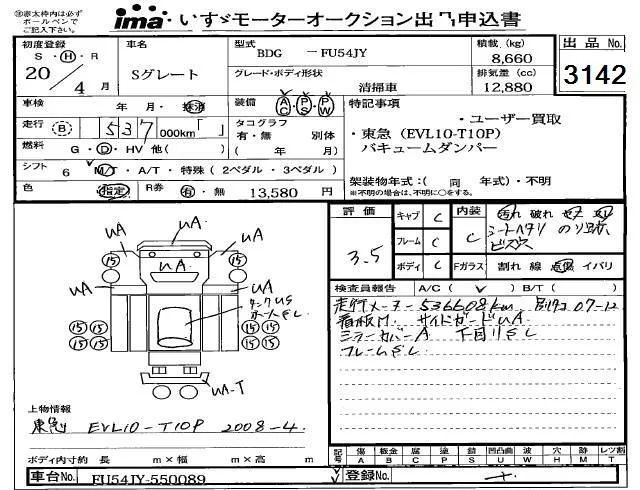 ※赤太枠内は必ず
ボールペンで
ご記入下さい。
ima いすゞモーターオークション出品申込書
初度登録 車名 型式 BDG －FU54JY 積載(kg) 8,660 出品No.
S・H・R
20/4月 Sグレート グレード・ボディ形状 清掃車 排気量(cc) 12,880 3142
車検 年・月・抹消 装備 AC・PS・PW 特記事項
・ユーザー買取
走行 B 537 000km「 」 タコグラフ 有・無 別体
・東急(EVL10-T10P)
バキュームダンパー
燃料 G・D・HV 他( )
シフト 6 M/T・A/T・特殊(2ペダル・3ペダル)
架装物年式:( 同 年式)・不明
色 指定 R券 有・無 13,580 円
※不明の場合は、不明に○をする。
評価 3.5 キャブ C 内装 C 汚れ 破れ
シートヘタリ
ビス穴
フレーム C
ボディ C Fガラス 割れ 線 点傷 イバリ
検査員報告 A/C( ✓ ) B/T( )
走行メーター 536608km 07-12
看板M. サイドガードUA
ミラーカバーA 下回りSし
フレームSし
UA UA
UA
15 15
UA UA
タンクUS
15 15 15 15
15 15 15 15
UA-T
上物情報
東急 EVL10-T10P 2008-4
ボディ内寸約 長 m×幅 m×高 m
記号 傷 A 板金 B 腐 C 塗 P 錆 S 凹凸凸 U 波 W 穴 H 跡 M レツ割 T
車台No. FU54JY-550089 登録No.